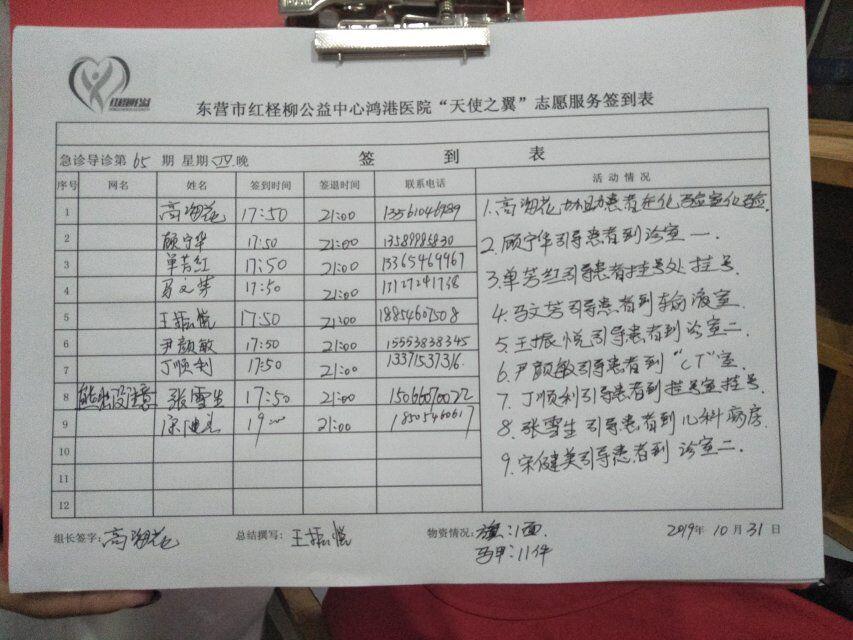 东营市红柽柳公益中心鸿港医院“天使之翼”志愿服务签到表
签 到 表
急诊导诊第 65 期 星期 四 晚
序号 网名 姓名 签到时间 签退时间 联系电话 活动情况
1 高海花 17:50 21:00 13561046989
2 顾宁华 17:50 21:00 13589995830
3 单芳红 17:50 21:00 13365469967
4 马文芳 17:50 21:00
5 王振悦 17:50 21:00 18854607508
6 尹颜敏 17:50 21:00 15553838345
7 丁顺利 17:50 21:00 13371537316
8 熊出没注意 张雪生 17:50 21:00 15066070022
9 宋健美 19:00 21:00 18505460617
10
11
12
1.高海花协助患者在化验室化验.
2.顾宁华引导患者到诊室一.
3.单芳红引导患者挂号处挂号.
4.马文芳引导患者到输液室.
5.王振悦引导患者到诊室二.
6.尹颜敏引导患者到“CT”室.
7.丁顺利引导患者到挂号室挂号.
8.张雪生引导患者到儿科病房.
9.宋健美引导患者到诊室二.
组长签字:高海花 总结撰写:王振悦 物资情况:旗:1面 2019年 10 月 31 日
马甲:11件